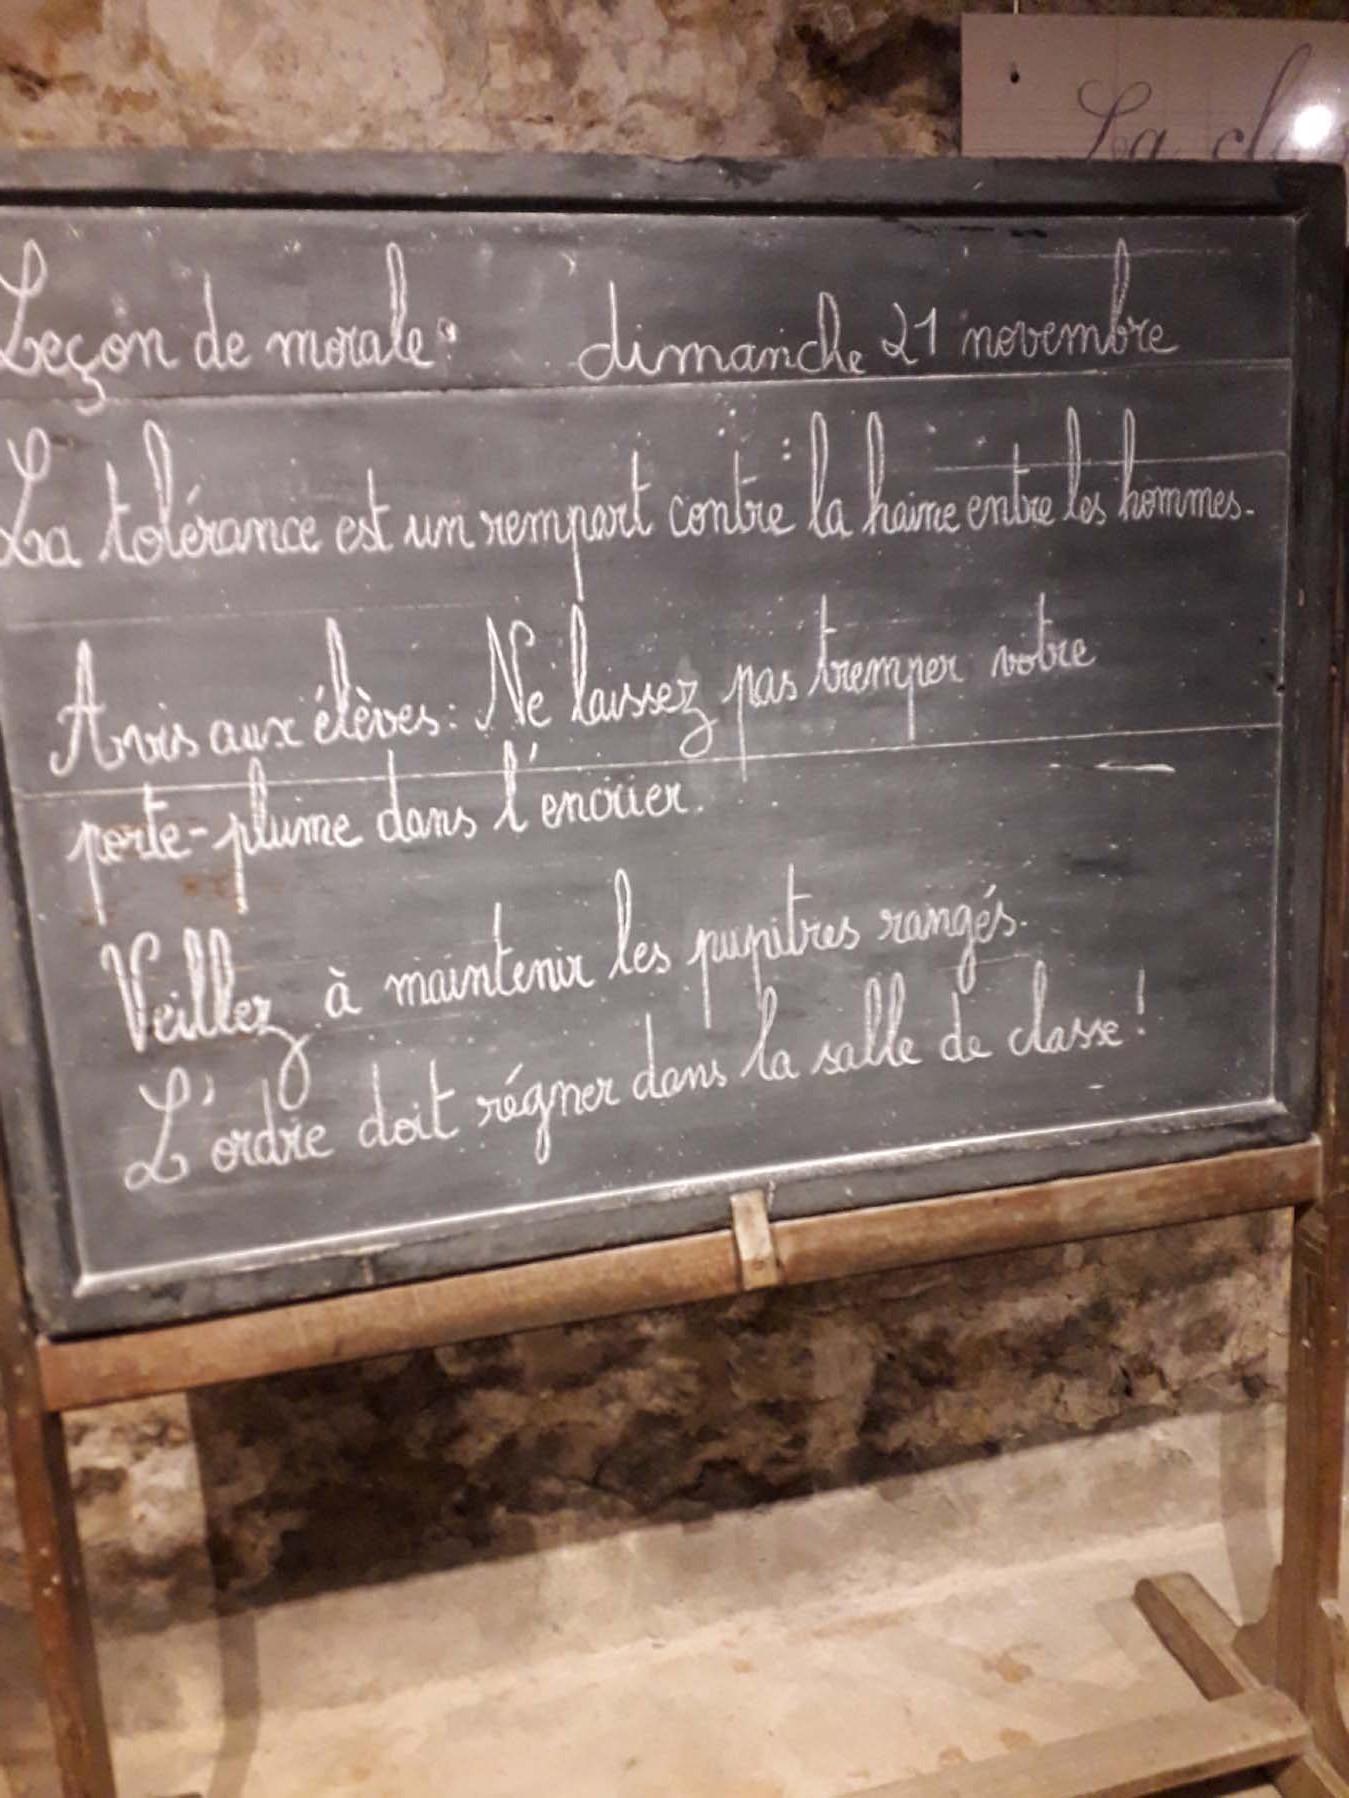 La cla
Leçon de morale: dimanche 21 novembre
La tolérance est un rempart contre la haine entre les hommes.
Avis aux élèves: Ne laissez pas tremper votre
porte-plume dans l'encrier.
Veillez à maintenir les pupitres rangés.
L'ordre doit régner dans la salle de classe!